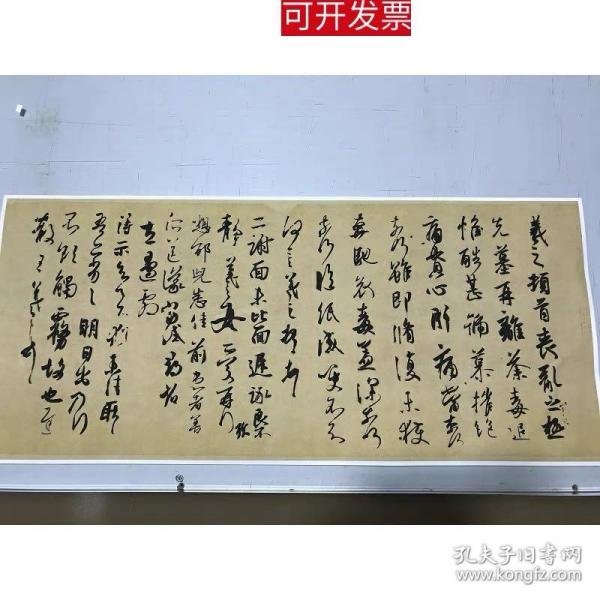 可开发票
羲之頓首喪亂之極
先墓再離荼毒追
惟酷甚號慕摧絕
痛貫心肝痛當柰何
柰何雖即脩復未獲
奔馳哀毒益深柰何
柰何臨紙感哽不知
何言羲之頓首頓首
二謝面未比面遲詠良不
靜羲之女愛再拜
想邵兒悉佳前患者善
所送議當試尋省
左邊劇
得示知足下猶未佳耿耿
吾亦劣劣明日出乃行
不欲觸霧故也遲
散王羲之頓首
孔夫子旧书网
www.kongfz.com